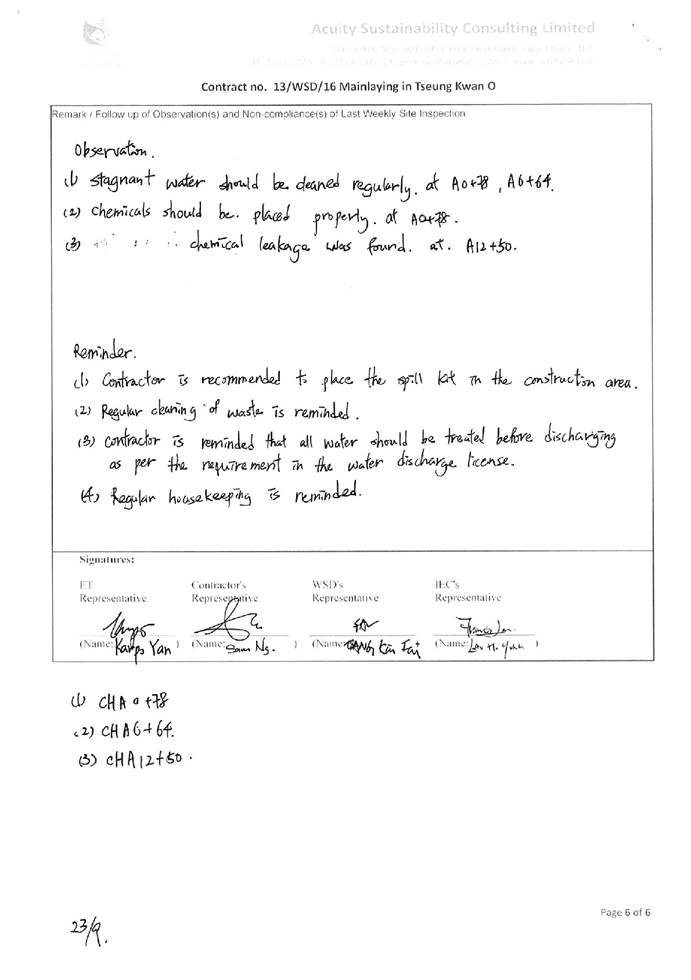 Acuity Sustainability Consulting Limited
Contract no. 13/WSD/16 Mainlaying in Tseung Kwan O
Remark / Follow up of Observation(s) and Non-compliance(s) of Last Weekly Site Inspection
Observation.
(1) Stagnant water should be cleaned regularly. at A0+78, A6+64.
(2) Chemicals should be. placed properly. at A0+78.
(3) chemical leakage was found. at. A12+50.
Reminder.
(1) Contractor is recommended to place the spill kit in the construction area.
(2) Regular cleaning of waste is reminded.
(3) Contractor is reminded that all water should be treated before discharging
as per the requirement in the water discharge license.
(4) Regular housekeeping is reminded.
Signatures:
ET Contractor's WSD's IEC's
Representative Representative Representative Representative
(Name: Yan) (Name: Sam Ng.) (Name: ) (Name: )
(1) CHA 0+78
(2) CHA6+64.
(3) CHA12+50.
Page 6 of 6
23/9.